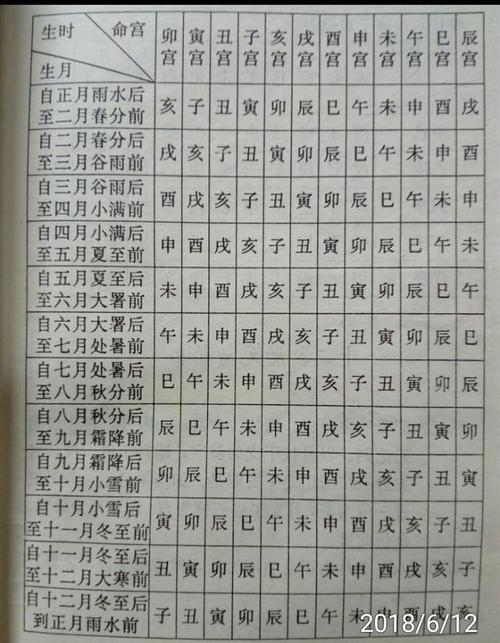 生时 命宫
生月
卯 寅 丑 子 亥 戌 酉 申 未 午 巳 辰
宫 宫 宫 宫 宫 宫 宫 宫 宫 宫 宫 宫
自正月雨水后
至二月春分前
亥 子 丑 寅 卯 辰 巳 午 未 申 酉 戌
自二月春分后
至三月谷雨前
戌 亥 子 丑 寅 卯 辰 巳 午 未 申 酉
自三月谷雨后
至四月小满前
酉 戌 亥 子 丑 寅 卯 辰 巳 午 未 申
自四月小满后
至五月夏至前
申 酉 戌 亥 子 丑 寅 卯 辰 巳 午 未
自五月夏至后
至六月大署前
未 申 酉 戌 亥 子 丑 寅 卯 辰 巳 午
自六月大署后
至七月处暑前
午 未 申 酉 戌 亥 子 丑 寅 卯 辰 巳
自七月处暑后
至八月秋分前
巳 午 未 申 酉 戌 亥 子 丑 寅 卯 辰
自八月秋分后
至九月霜降前
辰 巳 午 未 申 酉 戌 亥 子 丑 寅 卯
自九月霜降后
至十月小雪前
卯 辰 巳 午 未 申 酉 戌 亥 子 丑 寅
自十月小雪后
至十一月冬至前
寅 卯 辰 巳 午 未 申 酉 戌 亥 子 丑
自十一月冬至后
至十二月大寒前
丑 寅 卯 辰 巳 午 未 申 酉 戌 亥 子
自十二月冬至后
到正月雨水前
子 丑 寅 卯 辰 巳 午 未 申 酉 戌 亥
2018/6/12